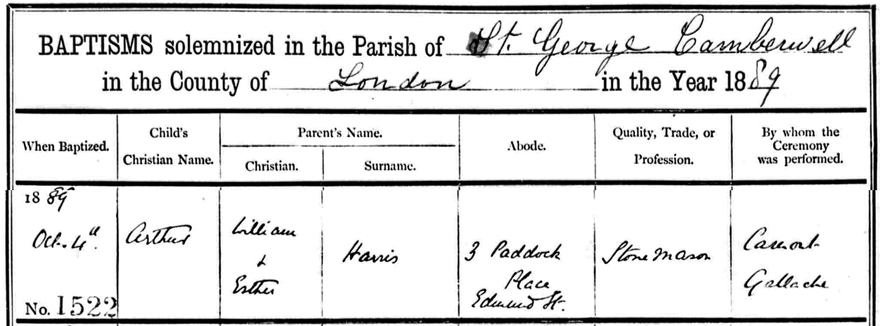 BAPTISMS solemnized in the Parish of St. George Camberwell
in the County of London in the Year 1889
When Baptized.
Child's
Christian Name.
Parent's Name.
Christian.
Surname.
Abode.
Quality, Trade, or
Profession.
By whom the
Ceremony
was performed.
1889
Oct. 4th.
No. 1522
Arthur
William
&
Esther
Harris
3 Paddock
Place
Edmund St.
Stone Mason